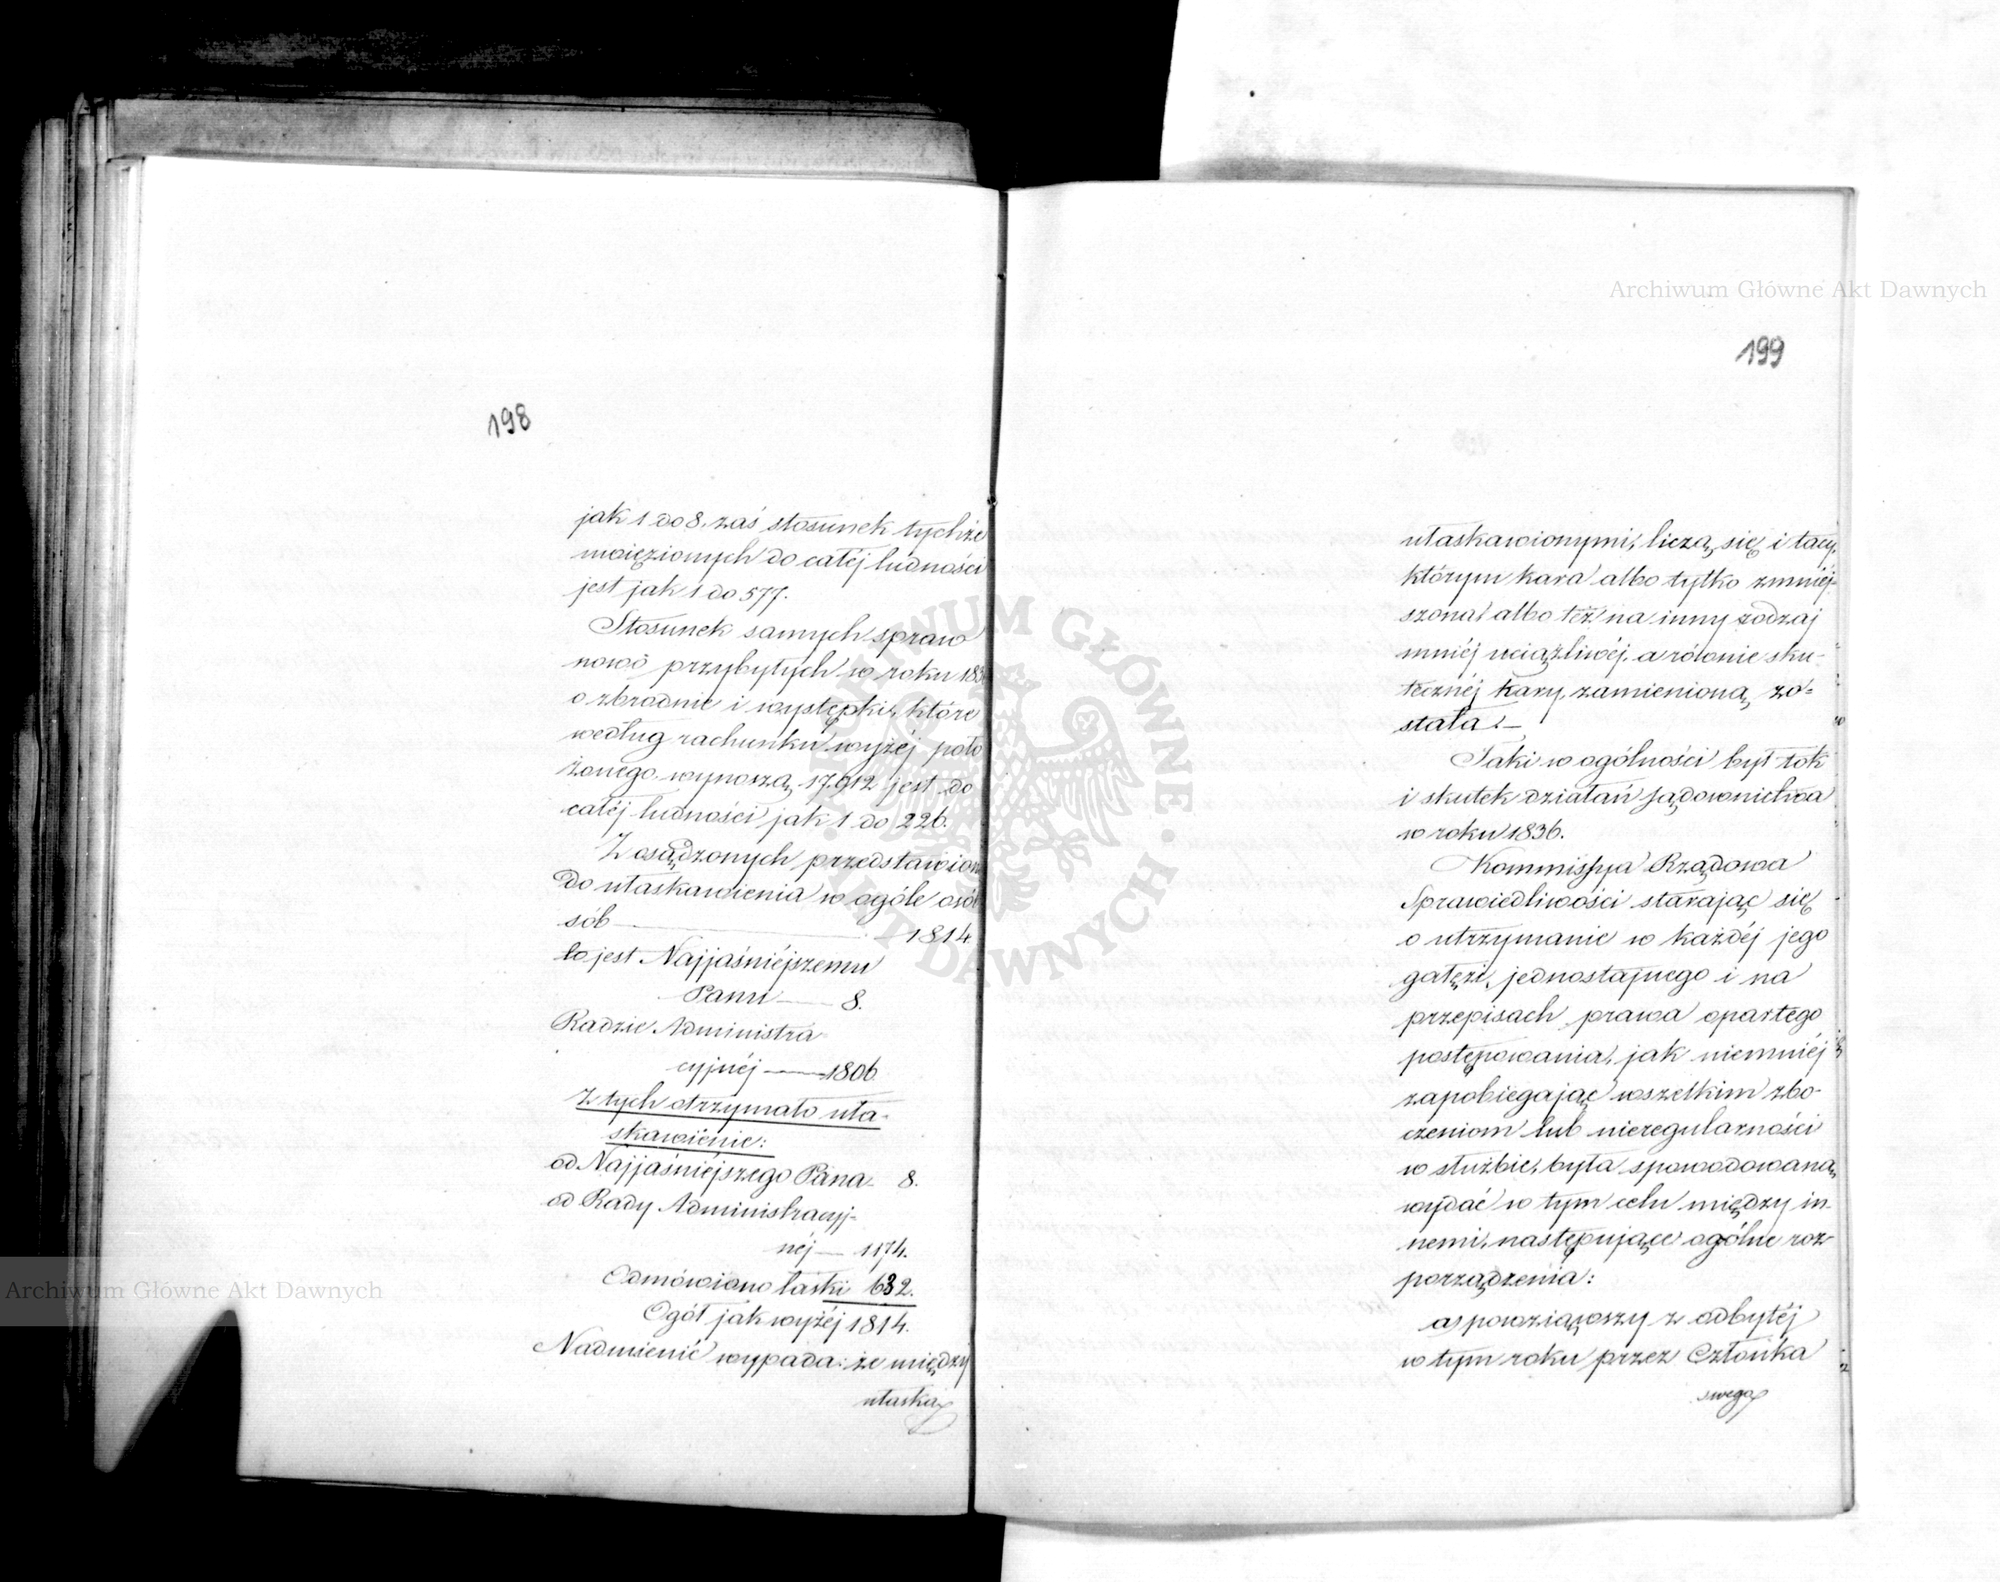 198
jak 1 do 8. zaś stosunek tychże
uwięzionych do całéj ludności
jest jak 1 do 577.
Stosunek samych spraw
nowo przybyłych w roku 183
o zbrodnie i występki, które
według rachunku wyżéj poło
żonego wynoszą 17.912 jest do
całéj ludności jak 1 do 226.
Z osądzonych przedstawion
do ułaskawienia w ogóle osób
sób 1814
to jest Najjaśniéjszemu
Panu 8.
Radzie Administra
cyjnéj 1806
Z tych otrzymało uła-
skawienie:
od Najjaśniejszego Pana 8.
od Rady Administracyj-
néj 1174.
Odmówiono łaski 632.
Ogół jak wyżéj 1814.
Nadmienić wypada: że między
ułaska
199
ułaskawionymi, liczą się i tacy,
którym kara albo tylko zmniéj-
szona, albo też na inny rodzaj
mniéj uciążliwéj, a równie sku-
tecznéj kary, zamienioną zo-
stała.
Taki w ogólności był tok
i skutek działań Sądownictwa
w roku 1836.
Kommissya Rządowa
Sprawiedliwości starając się
o utrzymanie w każdéj jego
gałęzi, jednostajnego i na
przepisach prawa opartego
postępowania, jak niemniéj
zapobiegając wszelkim zbo-
czeniom lub nieregularności
w służbie, była spowodowaną
wydać w tym celu między in-
nemi, następujące ogólne roz-
porządzenia:
a) powziąwszy z odbytéj
w tym roku przez Członka
swego
Archiwum Główne Akt Dawnych
Archiwum Główne Akt Dawnych
ARCHIWUM GŁÓWNE AKT DAWNYCH